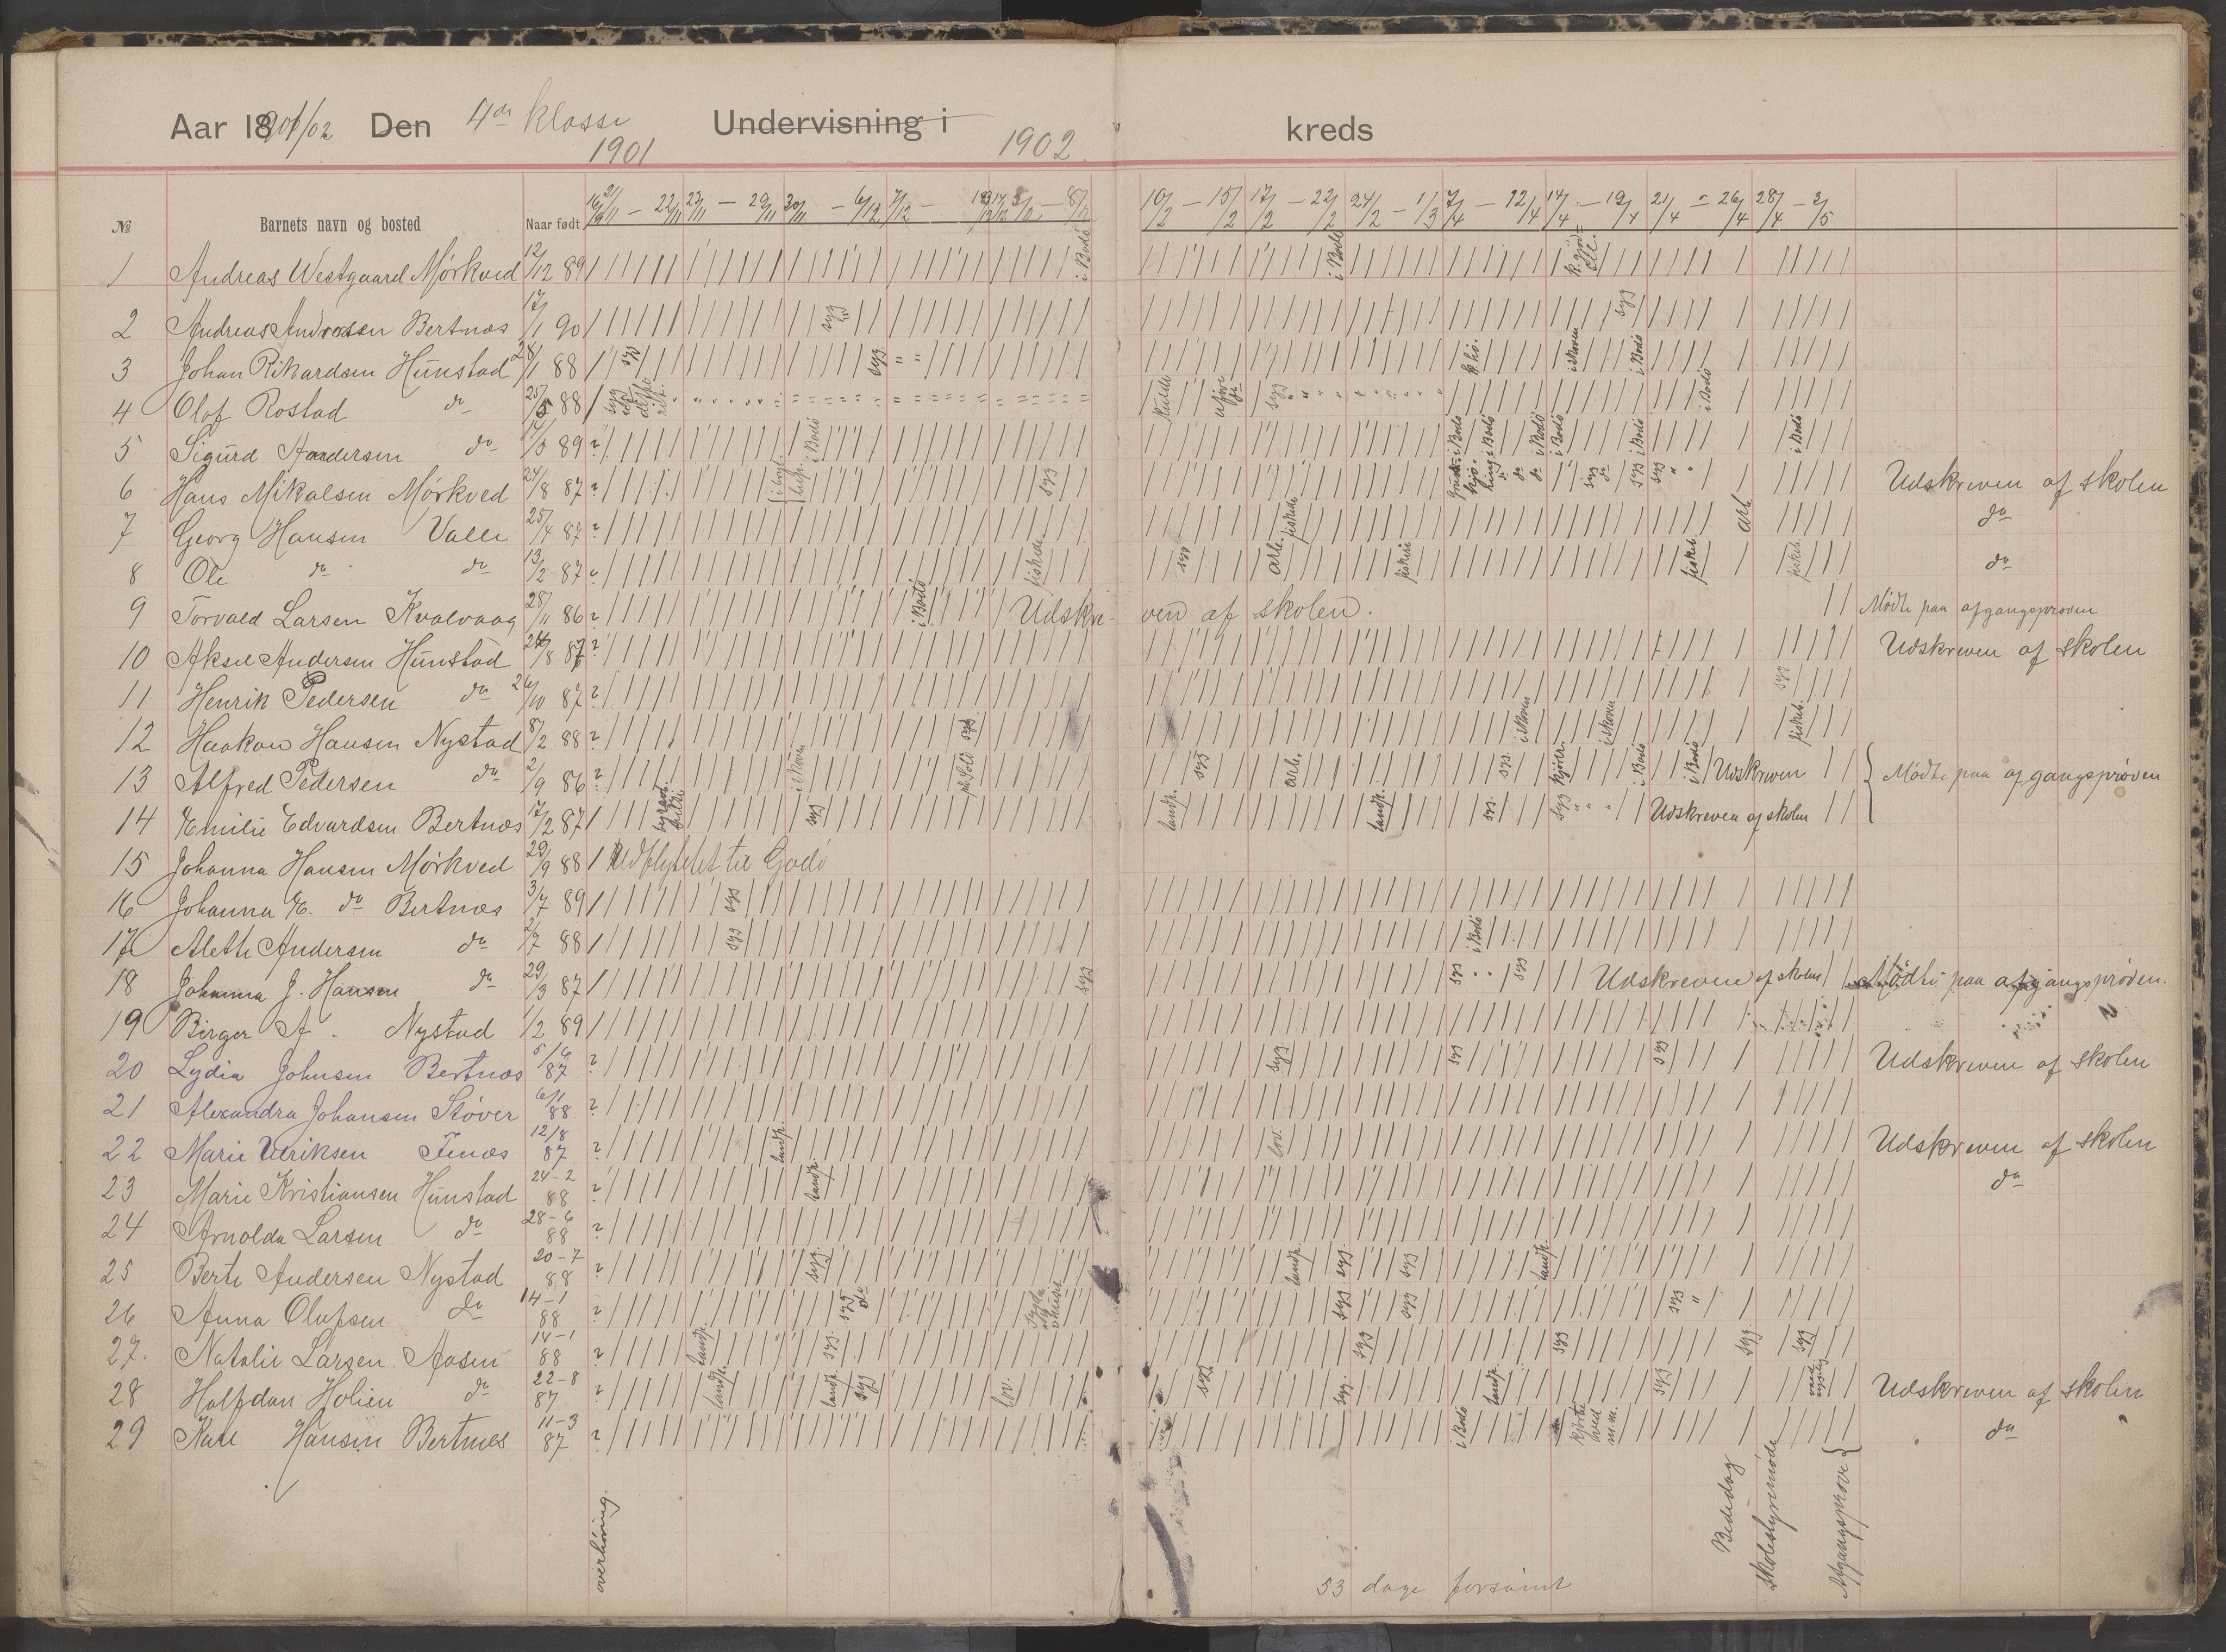 Aar 1901/02 Den 4de klasse Undervisning i kreds
1901 1902
№ Barnets navn og bosted Naar født 22/11 23/11 — 29/11 30/11 — 6/12 7/12 — 10/2 — 15/2 17/2 — 22/2 24/2 — 1/3 7/4 — 12/4 14/4 — 19/4 21/4 — 26/4 28/4 — 3/5
1 Andreas Westgaard Mørkved 12/12 89 i Bodö i Bodö
2 Andreas Andreasen Bertnæs 17/1 90 syg syg
3 Johan Rikardsen Hunstad 28/1 88 syg syg " " i skoven i Bodö
4 Olaf Rostad do 25/5 88 syg kulde syg i Bodö
5 Sigurd Andersen do 89 i Bodö i Bodö i Bodö i Bodö i Bodö i Bodö i Bodö
6 Hans Mikalsen Mørkved 24/8 87 syg syg do syg syg " " Udskreven af skolen
7 Georg Hansen Valle 25/4 87 fiskede arb. do
8 Ole do do 13/2 87 fiskede syg arb. fiskeri fiskeb. fiskeb. do
9 Torvald Larsen Kvalvaag 28/11 86 i Bodö Udskreven af skolen. Mödte paa afgangspröven
10 Aksel Andersen Hunstad 87 Udskreven af skolen
11 Henrik Pedersen do 26/10 87 syg
12 Haakon Hansen Nystad 8/2 88 syg i skoven i skoven fiskeb.
13 Alfred Pedersen do 2/9 86 i skoven syg arb. syg kjörer. i Bodö i Bodö Udskreven } Mödte paa afgangspröven
14 Emilie Edvardsen Bertnæs 17/2 87 syg landp. landp. syg syg " " " Udskreven af skolen
15 Johanna Hansen Mørkved 29/9 88 Udflyttet til Godö
16 Johanna E. do Bertnæs 3/7 89 syg
17 Aleth Andersen do 2/7 88 syg i Bodö
18 Johanna J. Hansen do 29/3 87 syg syg " " syg Udskreven af skolen Mödte paa afgangspröven.
19 Birger A. Nystad 1/2 89
20 Lydia Johnsen Bertnæs 5/6 87 syg syg syg Udskreven af skolen
21 Alexandra Johansen Støver 6/1 88
22 Marie Ulriksen Tenæs 12/8 87 landp. lov. Udskreven af skolen
23 Marie Kristiansen Hunstad 24-2 88 landp. do
24 Arnolda Larsen do 28-6 88
25 Berte Andersen Nystad 20-7 88 syg. landp. syg. syg landp.
26 Anna Olufsen do 14-1 88 syg do syg syg syg "
27. Natalie Larsen Aasen 14-1 88 landp. syg. syg syg syg. syg
28 Halfdan Holien do 22-8 87 landp. landp. syg lov. syg. syg. landp. syg Udskreven af skolen
29 Karl Hansen Bertnæs 11-3 87 i Bodö kjörte ved m.m. do
overhöring. Bededag skolestyremöde Afgangspröve }
53 dage forsömt